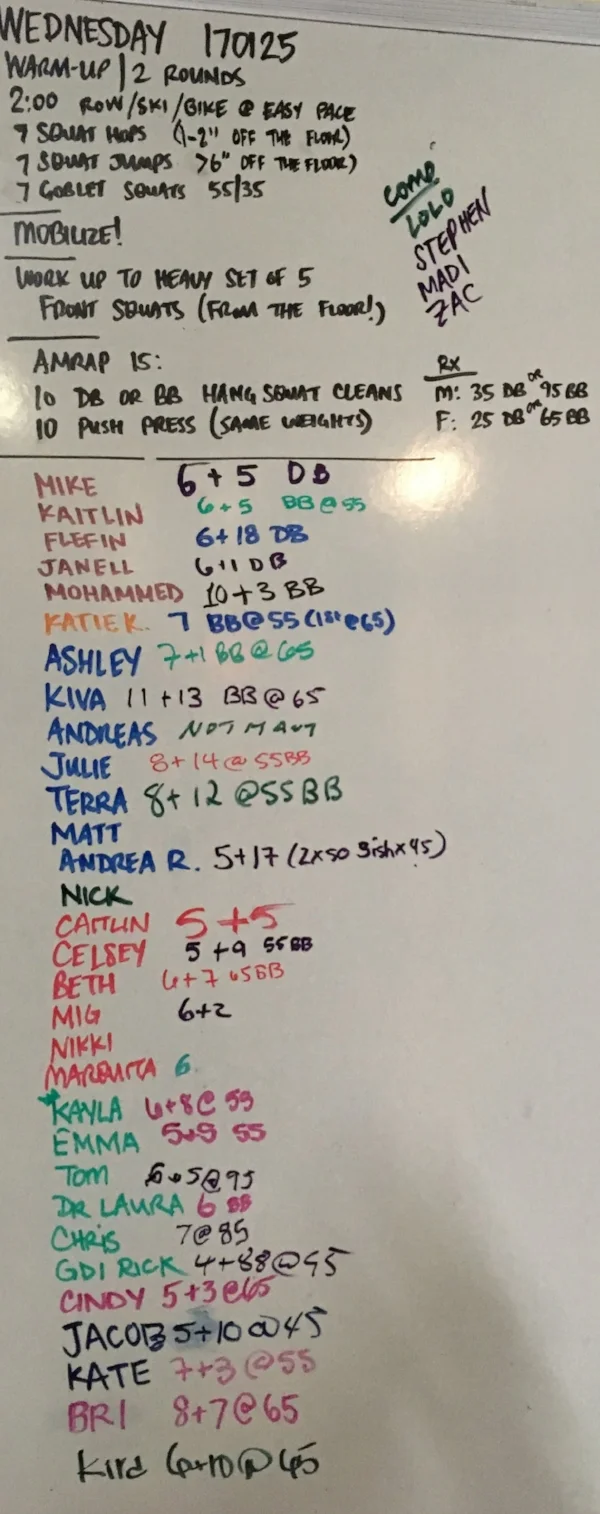 WEDNESDAY 170125
WARM-UP | 2 ROUNDS
2:00 ROW/SKI/BIKE @ EASY PACE
7 SQUAT HOPS (1-2" OFF THE FLOOR)
7 SQUAT JUMPS >6" OFF THE FLOOR)
7 GOBLET SQUATS 55/35
COMP
LOLO
STEPHEN
MADI
ZAC
MOBILIZE!
WORK UP TO HEAVY SET OF 5
FRONT SQUATS (FROM THE FLOOR!)
AMRAP 15:
10 DB OR BB HANG SQUAT CLEANS
10 PUSH PRESS (SAME WEIGHTS)
RX
M: 35 DB OR 95 BB
F: 25 DB OR 65 BB
MIKE 6+5 DB
KAITLIN 6+5 BB@55
FLEFIN 6+18 DB
JANELL 6+1 DB
MOHAMMED 10+3 BB
KATIE K. 7 BB@55 (1st @65)
ASHLEY 7+1 BB@65
KIVA 11+13 BB@65
ANDREAS NOT MANY
JULIE 8+14@55BB
TERRA 8+12 @55BB
MATT
ANDREA R. 5+17 (2x50
NICK
CAITLIN 5+5
CELSEY 5+9 55BB
BETH 6+7 65BB
MIG 6+2
NIKKI
MARQUITA 6
KAYLA 6+8@ 55
EMMA 55
TOM @95
DR LAURA 6 BB
CHRIS 7@85
GDI RICK 4+88@95
CINDY 5+3@65
JACOB 5+10@45
KATE 7+3@55
BRI 8+7@65
Kira 6+10@65